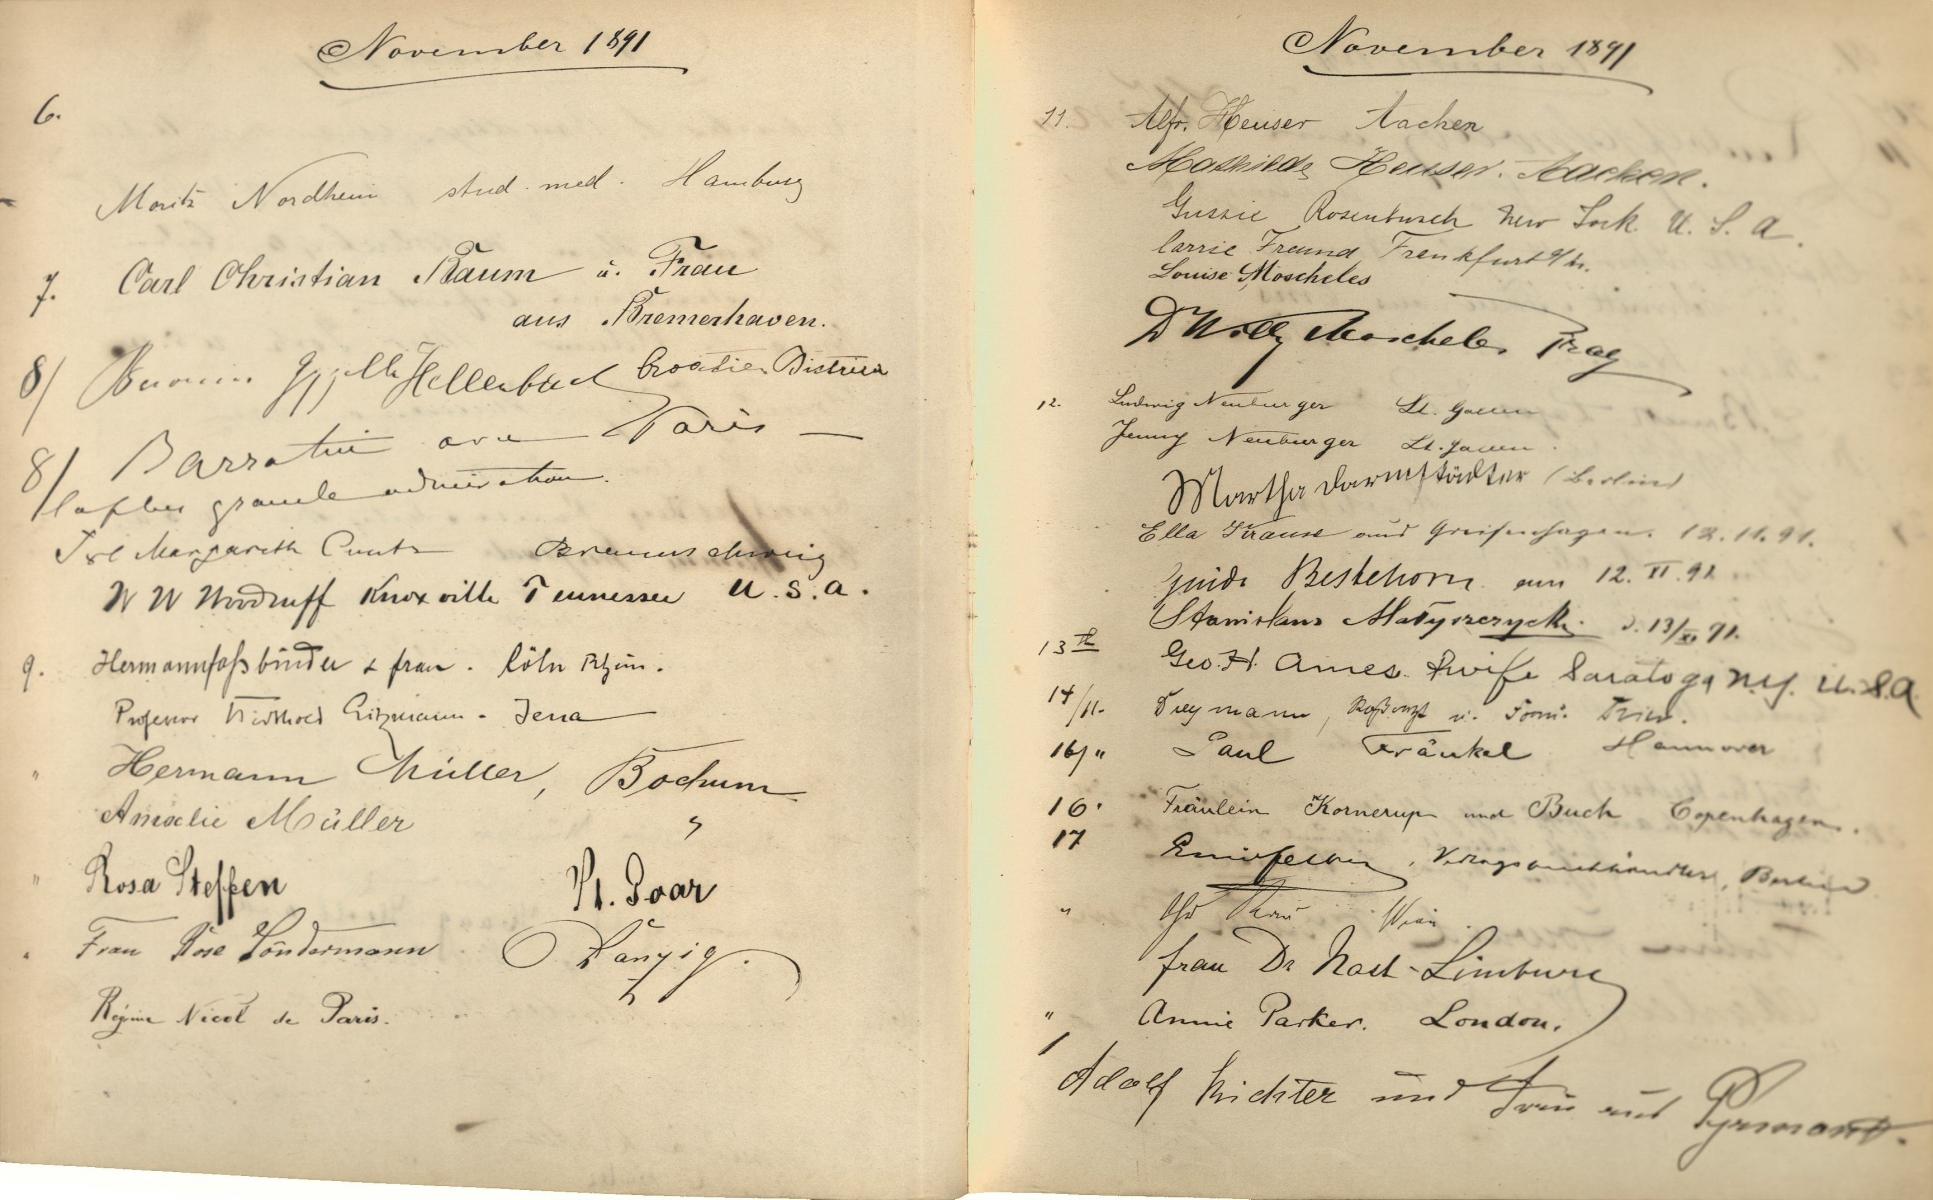 November 1891
6.
Moritz Nordheim stud. med. Hamburg
7. Carl Christian Baum u. Frau
aus Bremerhaven.
8/ Hellenbach
8/ Paris
grande admiration.
Margareth Cuntz Braunschweig
W W Woodruff Knoxville Tennessee U.S.A.
9. Hermann Faßbinder & frau. Cöln Rhein.
Professor Jena
" Hermann Müller, Bochum
Amalie Müller "
" Rosa Steffen St. Goar
" Frau Rose Sondermann Danzig.
Régine Nicol de Paris.
November 1891
11. Alfr. Heuser Aachen
Mathilde Heuser. Aachen.
Gussie Rosenbusch New York. U. S. A.
Carrie Freund Frankfurt a/M.
Louise Moscheles
Dr Willy Moscheles Prag
12. Ludwig Neuburger St. Gallen
Jenny Neuburger St. Gallen.
Martha Darmstädter (Berlin)
Ella Krause aus Greifenhagen. 12.11.91.
Guido Bestehorn am 12. XI. 91.
Stanislaus d. 13/XI 91.
13th Geo. H. Ames & wife Saratoga N.Y. U.S.A
14/11. Trier.
16/" Paul Fränkel Hannover
16. Fräulein Kornerup und Buch Copenhagen.
17 Verlagsbuchhändler, Berlin
" Wien.
frau Dr Limburg
" Annie Parker. London.
Adolf Richter und Frau aus Pyrmont.